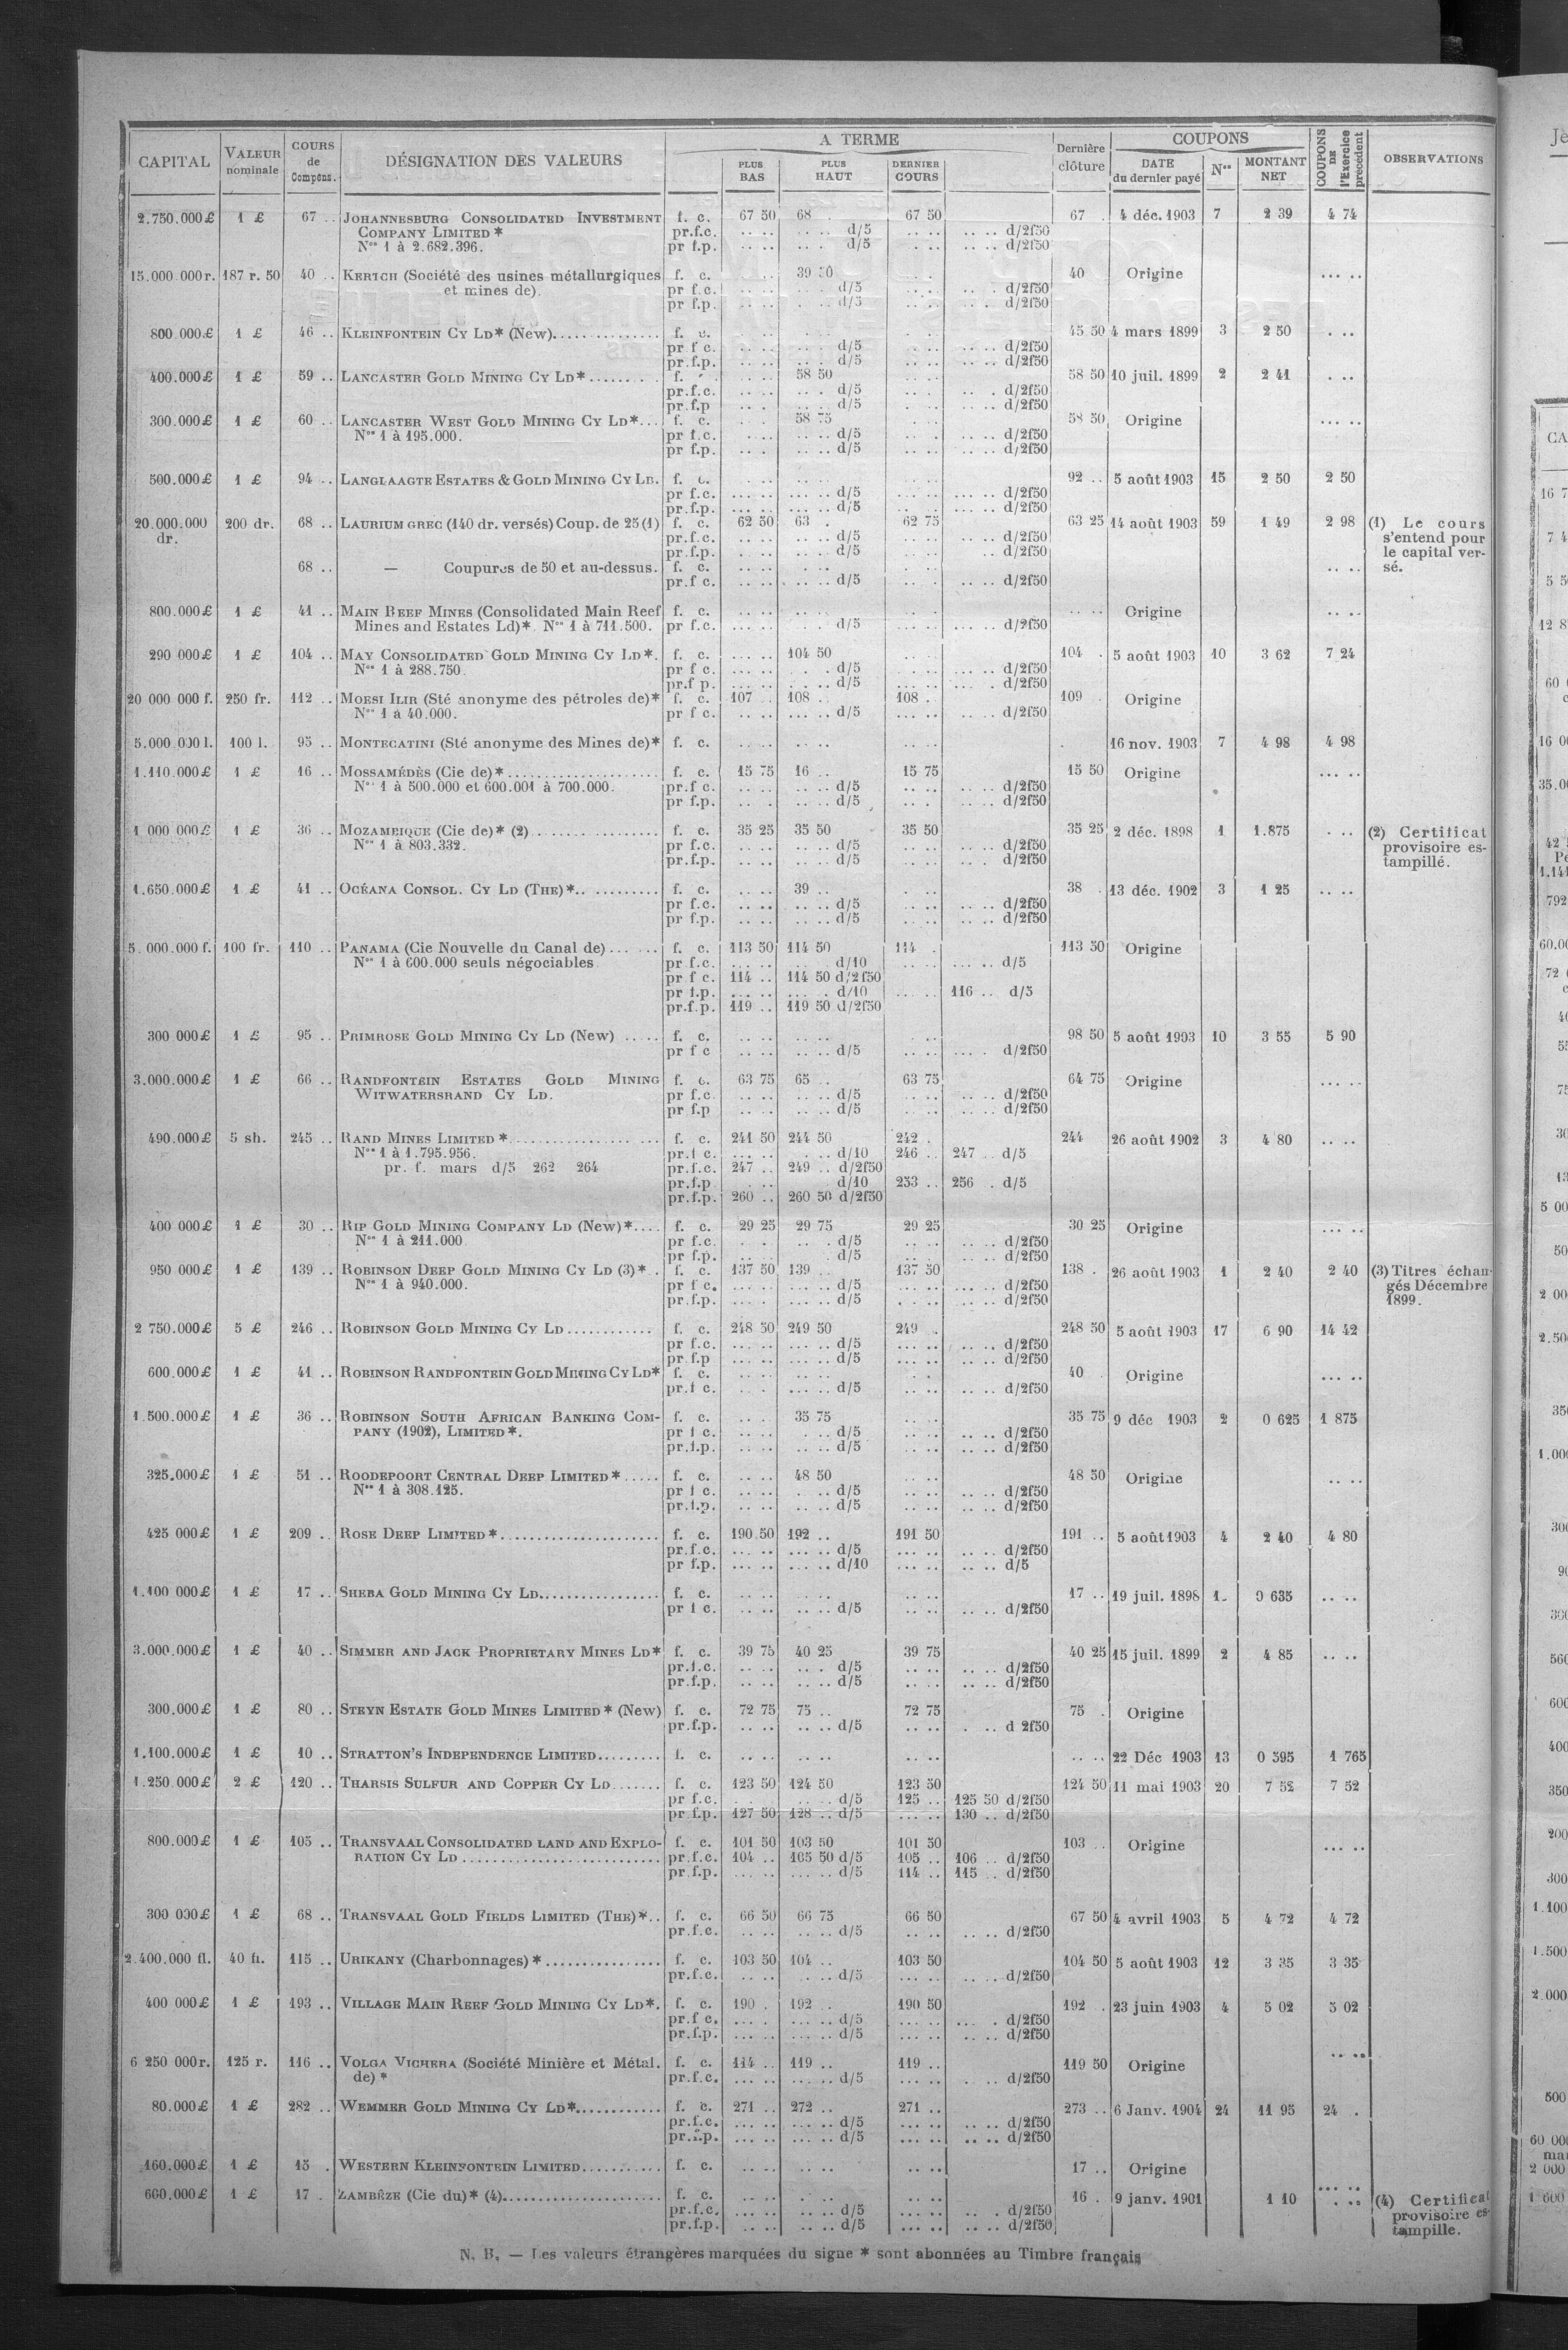 CAPITAL VALEUR nominale COURS de Compens. DÉSIGNATION DES VALEURS A TERME PLUS BAS PLUS HAUT DERNIER COURS Dernière clôture COUPONS DATE du dernier payé Nos MONTANT NET COUPONS DE l'Exercice précédent OBSERVATIONS
2.750.000£ 1 £ 67 .. JOHANNESBURG CONSOLIDATED INVESTMENT f. c. 67 50 68 . 67 50 67 . 4 déc. 1903 7 2 39 4 74
COMPANY LIMITED * pr.f.c. .. .. .. .. d/5 .. .. .. .. d/2f50
Nos 1 à 2.682.396. pr f.p. .. .. .. . d/5 .. .. .. .. d/2f50
15.000.000r. 187 r. 50 40 .. KERTCH (Société des usines métallurgiques f. c. 39 50 40 Origine ... ..
et mines de). pr f.c. .. .. d/5 .. .. d/2f50
pr f.p. .. .. d/5 .. .. d/2f50
800.000£ 1 £ 46 .. KLEINFONTEIN CY LD* (New).............. f. c. 45 50 4 mars 1899 3 2 50 . ..
pr f c. .. .. d/5 .. .. d/2f50
pr.f.p. .. .. d/5 .. .. d/2f50
400.000£ 1 £ 59 .. LANCASTER GOLD MINING CY LD*....... f. 58 50 58 50 10 juil. 1899 2 2 41 . ..
pr.f.c. .. .. d/5 .. .. d/2f50
pr.f.p .. .. d/5 .. .. d/2f50
300.000£ 1 £ 60 .. LANCASTER WEST GOLD MINING CY LD*... f. c. 58 75 58 50 Origine ... ..
Nos 1 à 195.000. pr f.c. .. .. d/5 .. .. d/2f50
pr f.p. .. .. d/5 .. .. d/2f50
500.000£ 1 £ 94 .. LANGLAAGTE ESTATES & GOLD MINING CY LD. f. c. 92 .. 5 août 1903 15 2 50 2 50
pr f.c. .. .. d/5 .. .. d/2f50
pr.f.p. .. .. d/5 .. .. d/2f50
20.000.000 200 dr. 68 .. LAURIUM GREC (140 dr. versés) Coup. de 25 (1) f. c. 62 50 63 . 62 75 63 25 14 août 1903 59 1 49 2 98 (1) Le cours
dr. pr.f.c. .. .. d/5 .. .. d/2f50 s'entend pour
pr.f.p. .. .. d/5 .. .. d/2f50 le capital ver-
68 .. — Coupures de 50 et au-dessus. f. c. .. .. sé.
pr.f c. .. .. d/5 .. .. d/2f50
800.000£ 1 £ 41 .. MAIN REEF MINES (Consolidated Main Reef f. c. .. .. Origine .. ..
Mines and Estates Ld)*. Nos 1 à 711.500. pr f.c. .. .. d/5 .. .. d/2f50
290 000£ 1 £ 104 .. MAY CONSOLIDATED GOLD MINING CY LD*. f. c. 104 50 104 . 5 août 1903 10 3 62 7 24
Nos 1 à 288.750. pr f c. .. .. d/5 .. .. d/2f50
pr.f p. .. .. d/5 .. .. d/2f50
20 000 000 f. 250 fr. 112 .. MOESI ILIR (Sté anonyme des pétroles de)* f. c. 107 108 . 108 . 109 Origine
Nos 1 à 40.000. pr f c. .. .. d/5 .. .. d/2f50
5.000 000 l. 100 l. 95 .. MONTECATINI (Sté anonyme des Mines de)* f. c. .. .. .. .. .. .. 16 nov. 1903 7 4 98 4 98
1.110.000£ 1 £ 16 .. MOSSAMÉDÈS (Cie de)*..................... f. c. 15 75 16 .. 15 75 15 50 Origine ... ..
Nos 1 à 500.000 et 600.001 à 700.000. pr.f c. .. .. d/5 .. .. d/2f50
pr f.p. .. .. d/5 .. .. d/2f50
1 000 000£ 1 £ 36 .. MOZAMBIQUE (Cie de)* (2)................. f. c. 35 25 35 50 35 50 35 25 2 déc. 1898 1 1.875 . .. (2) Certificat
Nos 1 à 803.332. pr f.c. .. .. d/5 .. .. d/2f50 provisoire es-
pr.f.p. .. .. d/5 .. .. d/2f50 tampillé.
1.650.000£ 1 £ 41 .. OCÉANA CONSOL. CY LD (THE)*.. ......... f. c. 39 .. 38 . 13 déc. 1902 3 1 25 .. ..
pr f.c. .. .. d/5 .. .. d/2f50
pr f.p. .. .. d/5 .. .. d/2f50
5.000.000 f. 100 fr. 110 .. PANAMA (Cie Nouvelle du Canal de)... ... f. c. 113 50 114 50 114 . 113 50 Origine
Nos 1 à 600.000 seuls négociables pr f.c. .. .. d/10 .. .. d/5
pr f c. 114 .. 114 50 d/2f50
pr f.p. .. .. d/10 116 .. d/5
pr.f.p. 119 .. 119 50 d/2f50
300 000£ 1 £ 95 .. PRIMROSE GOLD MINING CY LD (New) ..... f. c. 98 50 5 août 1903 10 3 55 5 90
pr f c .. .. d/5 .. .. d/2f50
3.000.000£ 1 £ 66 .. RANDFONTEIN ESTATES GOLD MINING f. c. 63 75 65 .. 63 75 64 75 Origine ... ..
WITWATERSRAND CY LD. pr f.c. .. .. d/5 .. .. d/2f50
pr f.p .. .. d/5 .. .. d/2f50
490.000£ 5 sh. 245 .. RAND MINES LIMITED *................ ... f. c. 241 50 244 50 242 . 244 26 août 1902 3 4 80 .. ..
Nos 1 à 1.795.956. pr.f c. .. .. d/10 246 .. 247 .. d/5
pr. f. mars d/5 262 264 pr.f.c. 247 .. 249 .. d/2f50
pr.f.p d/10 253 .. 256 . d/5
pr.f.p. 260 .. 260 50 d/2f50
400 000£ 1 £ 30 .. RIP GOLD MINING COMPANY LD (New)*.... f. c. 29 25 29 75 29 25 30 25 Origine ... ..
Nos 1 à 211.000 pr f.c. .. .. d/5 .. .. d/2f50
pr f.p. .. .. d/5 .. .. d/2f50
950 000£ 1 £ 139 .. ROBINSON DEEP GOLD MINING CY LD (3)* . f. c. 137 50 139 .. 137 50 138 . 26 août 1903 1 2 40 2 40 (3) Titres échan-
Nos 1 à 940.000. pr f c. .. .. d/5 .. .. d/2f50 gés Décembre
pr.f.p. .. .. d/5 .. .. d/2f50 1899.
2 750.000£ 5 £ 246 .. ROBINSON GOLD MINING CY LD............ f. c. 248 50 249 50 249 . 248 50 5 août 1903 17 6 90 14 42
pr f.c. .. .. d/5 .. .. d/2f50
pr f.p .. .. d/5 .. .. d/2f50
600.000£ 1 £ 41 .. ROBINSON RANDFONTEIN GOLD MINING CY LD* f. c. 40 . Origine ... ..
pr.f c. .. .. d/5 .. .. d/2f50
1.500.000£ 1 £ 36 .. ROBINSON SOUTH AFRICAN BANKING COM- f. c. 35 75 35 75 9 déc 1903 2 0 625 1 875
PANY (1902), LIMITED*. pr f c. .. .. d/5 .. .. d/2f50
pr.f.p. .. .. d/5 .. .. d/2f50
325.000£ 1 £ 51 .. ROODEPOORT CENTRAL DEEP LIMITED*..... f. c. 48 50 48 50 Origine .. ..
Nos 1 à 308.125. pr f c. .. .. d/5 .. .. d/2f50
pr.f.p. .. .. d/5 .. .. d/2f50
425 000£ 1 £ 209 .. ROSE DEEP LIMITED*...................... f. c. 190.50 192 .. 191 50 191 .. 5 août 1903 4 2 40 4 80
pr.f.c. .. .. d/5 .. .. d/2f50
pr f.p. .. .. d/10 .. .. d/5
1.100 000£ 1 £ 17 .. SHEBA GOLD MINING CY LD................ f. c. 17 .. 19 juil. 1898 1. 0 635 .. ..
pr f c. .. .. d/5 .. .. d/2f50
3.000.000£ 1 £ 40 .. SIMMER AND JACK PROPRIETARY MINES LD* f. c. 39 75 40 25 39 75 40 25 15 juil. 1899 2 4 85 .. ..
pr.f.c. .. .. d/5 .. .. d/2f50
pr.f.p. .. .. d/5 .. .. d/2f50
300.000£ 1 £ 80 .. STEYN ESTATE GOLD MINES LIMITED* (New) f. c. 72 75 75 .. 72 75 75 . Origine
pr.f.p. .. .. d/5 .. .. d 2f50
1.100.000£ 1 £ 10 .. STRATTON'S INDEPENDENCE LIMITED......... f. c. .. .. .. .. .. .. .. .. 22 Déc 1903 13 0 595 1 765
1.250.000£ 2 £ 120 .. THARSIS SULFUR AND COPPER CY LD....... f. c. 123 50 124 50 123 50 124 50 11 mai 1903 20 7 52 7 52
pr f.c. .. .. d/5 125 .. 125 50 d/2f50
pr f.p. 127 50 128 .. d/5 .. .. 130 .. d/2f50
800.000£ 1 £ 105 .. TRANSVAAL CONSOLIDATED LAND AND EXPLO- f. c. 101 50 103 50 101 50 103 .. Origine ... ..
RATION CY LD.......................... pr.f.c. 104 .. 105 50 d/5 105 .. 106 .. d/2f50
pr.f.p. .. .. d/5 114 .. 115 .. d/2f50
300 000£ 1 £ 68 .. TRANSVAAL GOLD FIELDS LIMITED (THE)*.. f. c. 66 50 66 75 66 50 67 50 4 avril 1903 5 4 72 4 72
pr.f.c. .. .. d/5 .. .. d/2f50
2.400.000 fl. 40 fl. 115 .. URIKANY (Charbonnages)*................ f. c. 103 50 104 .. 103 50 104 50 5 août 1903 12 3 35 3 35
pr.f.c. .. .. d/5 .. .. d/2f50
400 000£ 1 £ 193 .. VILLAGE MAIN REEF GOLD MINING CY LD*. f. c. 190 . 192 .. 190 50 192 . 23 juin 1903 4 5 02 5 02
pr.f c. .. .. d/5 .. .. d/2f50
pr.f.p. .. .. d/5 .. .. d/2f50
6 250 000r. 125 r. 116 .. VOLGA VICHERA (Société Minière et Métal. f. c. 114 .. 119 .. 119 .. 119 50 Origine .. ..
de)* pr.f.c. .. .. d/5 .. .. d/2f50
80.000£ 1 £ 282 .. WEMMER GOLD MINING CY LD*............ f. c. 271 .. 272 .. 271 .. 273 .. 6 Janv. 1904 24 11 95 24 .
pr.f.c. .. .. d/5 .. .. d/2f50
pr.f.p. .. .. d/5 .. .. d/2f50
160.000£ 1 £ 15 . WESTERN KLEINFONTEIN LIMITED........... f. c. .. .. .. .. .. .. 17 .. Origine
600.000£ 1 £ 17 . ZAMBÈZE (Cie du)* (4)...................... f. c. 16 . 9 janv. 1901 1 10 . .. (4) Certificat
pr.f.c. .. .. d/5 .. .. d/2f50 provisoire es-
pr.f.p. .. .. d/5 .. .. d/2f50 tampille.
N. B. — Les valeurs étrangères marquées du signe * sont abonnées au Timbre français